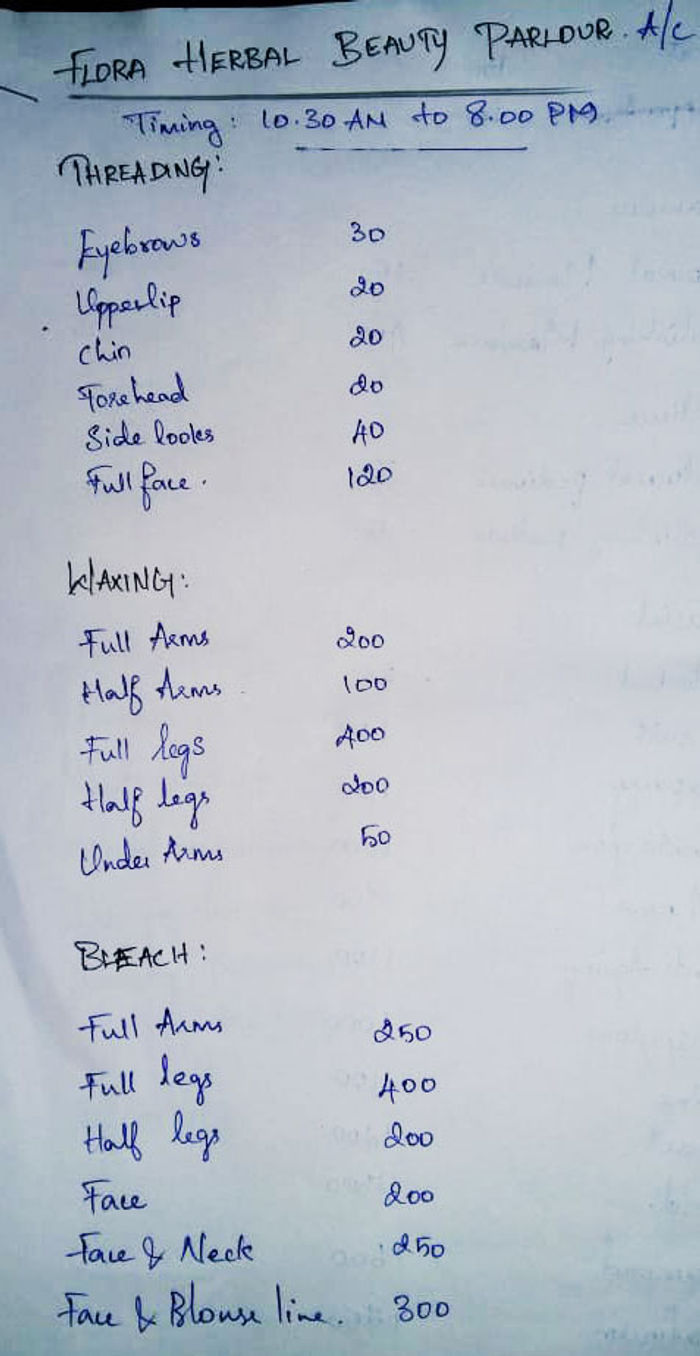 FLORA HERBAL BEAUTY PARLOUR. A/C
Timing: 10.30 AM to 8.00 PM
THREADING:
Eyebrows 30
Upperlip 20
Chin 20
Forehead 20
Side looks 40
Full face. 120
WAXING:
Full Arms 200
Half Arms 100
Full legs 400
Half legs 200
Under Arms 50
BLEACH:
Full Arms 250
Full legs 400
Half legs 200
Face 200
Face & Neck 250
Face & Blouse line. 300